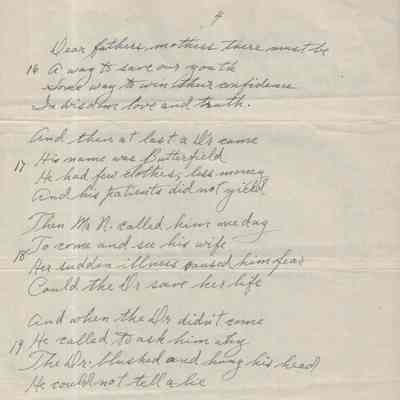 4
Dear fathers, mothers there must be
16 A way to save our youth
Some way to win their confidence
In wisdom love and truth.
And then at last a Dr came
17 His name was Butterfield
He had few clothes, less money
And his patients did not yield
Then Mr N. called him one day
18 To come and see his wife
Her sudden illness caused him fear
Could the Dr save her life
And when the Dr didn't come
19 He called to ask him why
The Dr. blushed and hung his head
He could not tell a lie